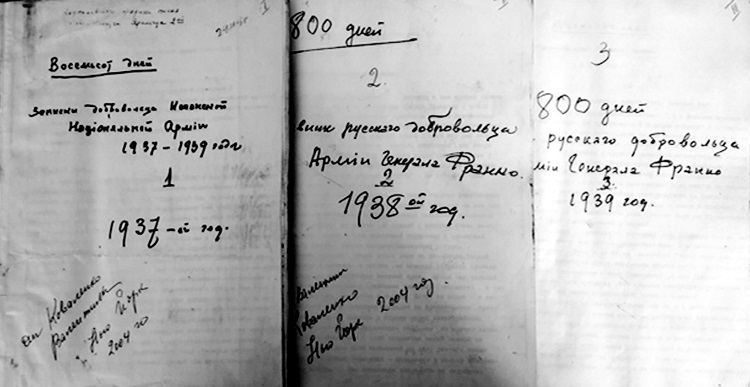 I
Восемьсот дней
Записки добровольца Испанской
Національной Арміи
1937 – 1939 годы
1
1937 – ой год.
Коваленко
Валентины
Нью Йорк
2004 го
II
800 дней
2.
вник русскаго добровольца
Арміи Генерала Франко.
2
1938 ой год.
Валентин
Коваленко
Нью Йорк 2004 год.
III
3
800 дней
русскаго добровольца
міи Генерала Франко
3.
1939 год.